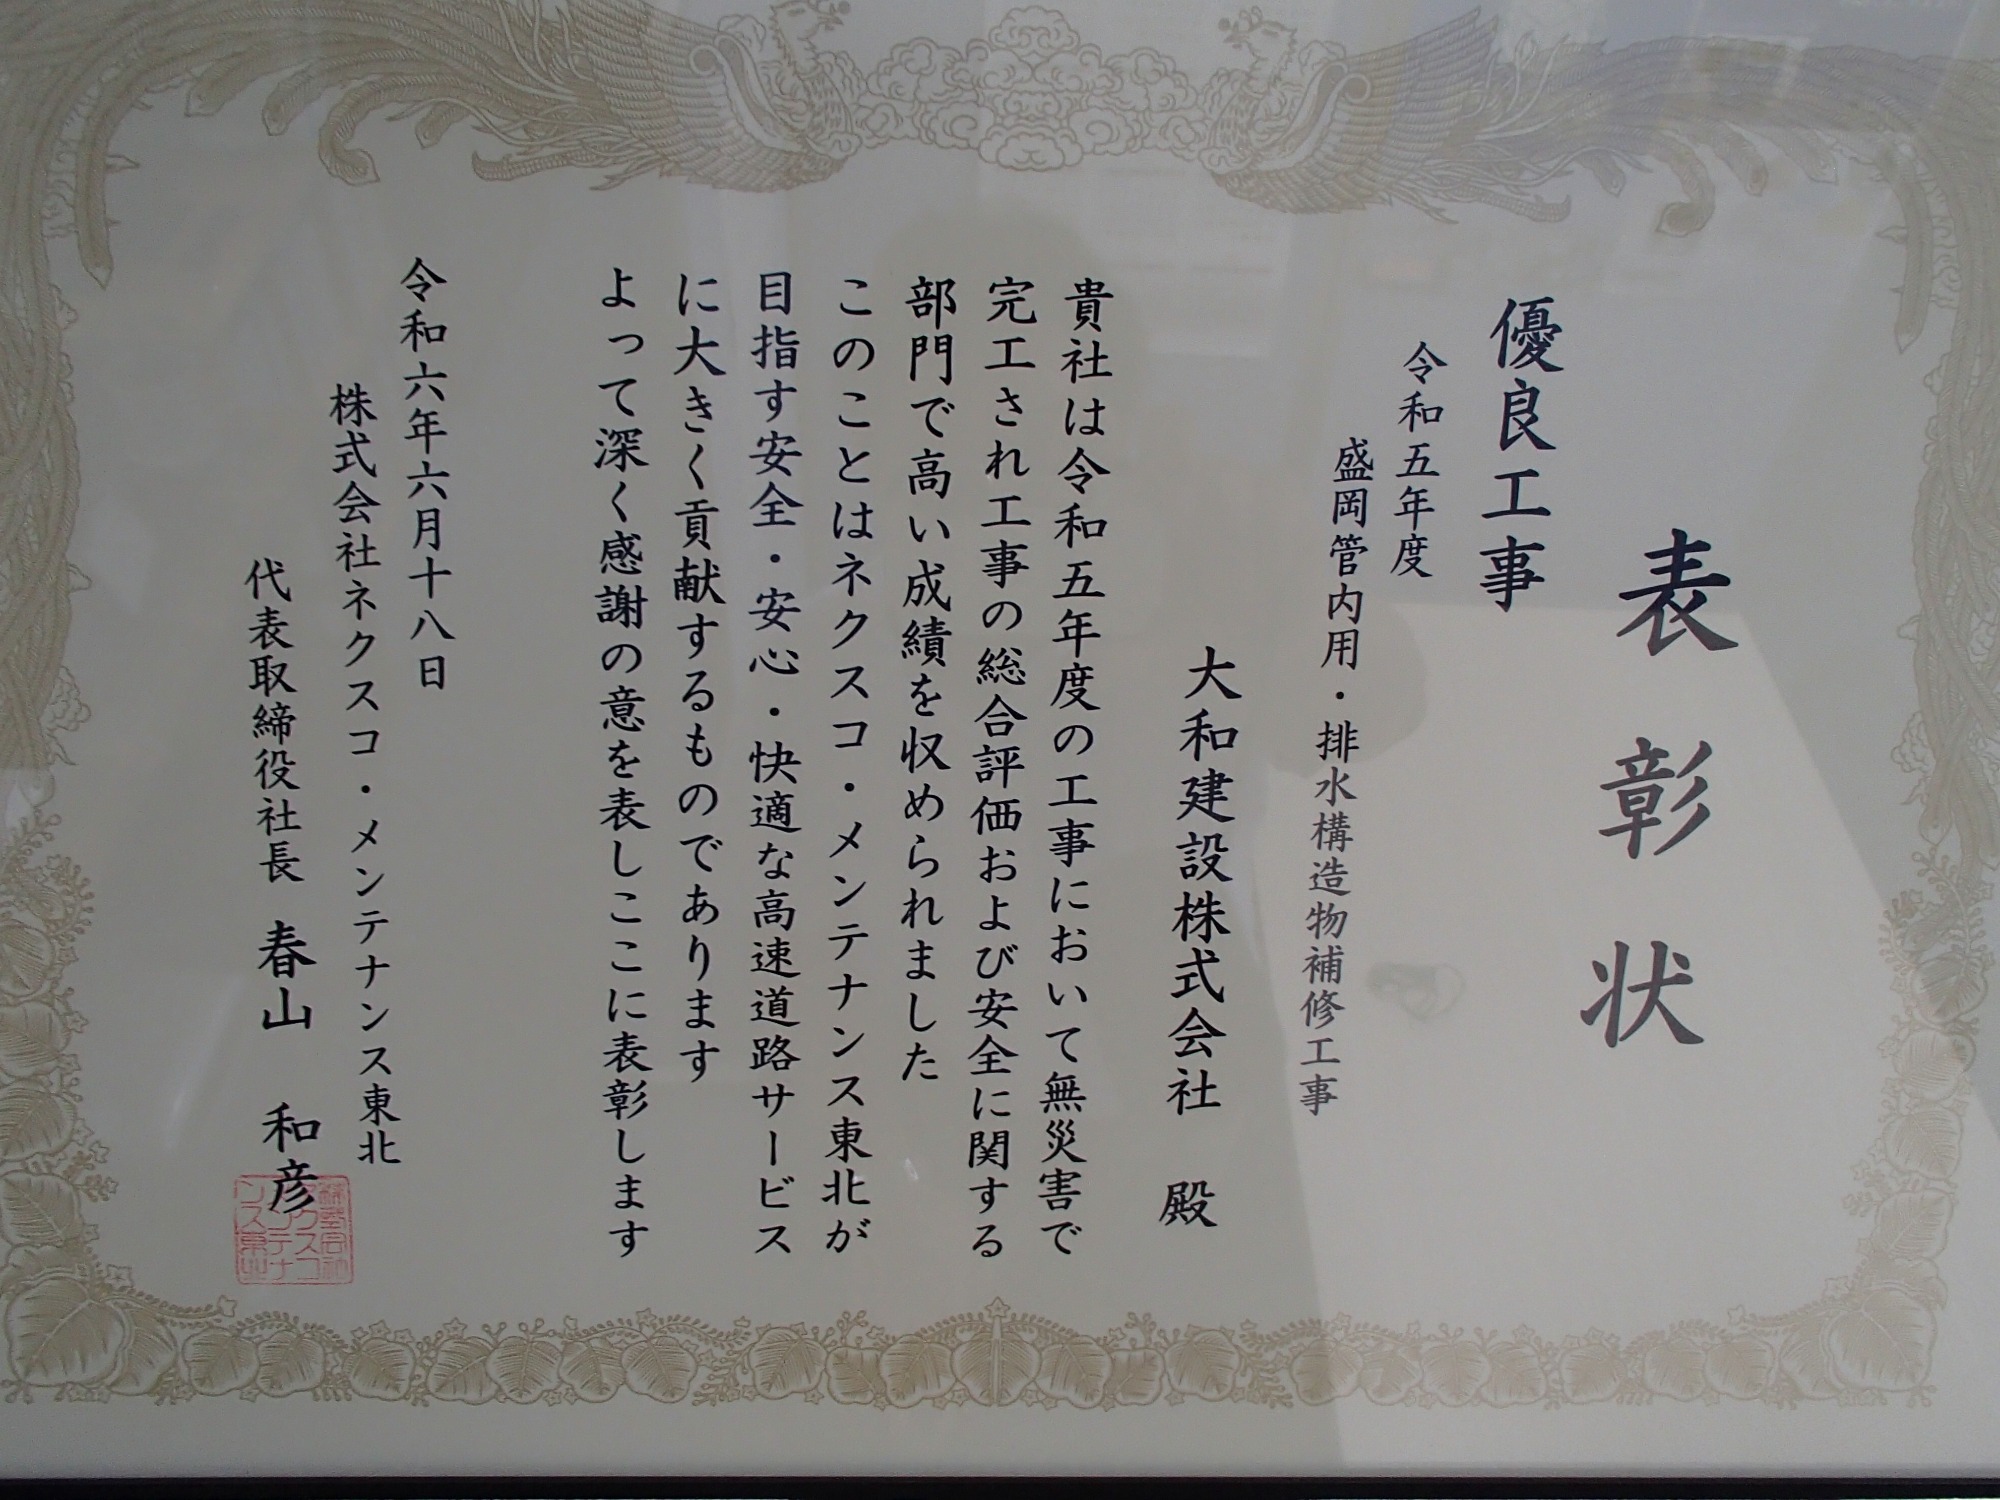 表彰状
優良工事
令和五年度
盛岡管内用・排水構造物補修工事
大和建設株式会社 殿
貴社は令和五年度の工事において無災害で
完工され工事の総合評価および安全に関する
部門で高い成績を収められました
このことはネクスコ・メンテナンス東北が
目指す安全・安心・快適な高速道路サービス
に大きく貢献するものであります
よって深く感謝の意を表しここに表彰します
令和六年六月十八日
株式会社ネクスコ・メンテナンス東北
代表取締役社長 春山 和彦
株式会社
ネクスコ
メンテナ
ンス東北